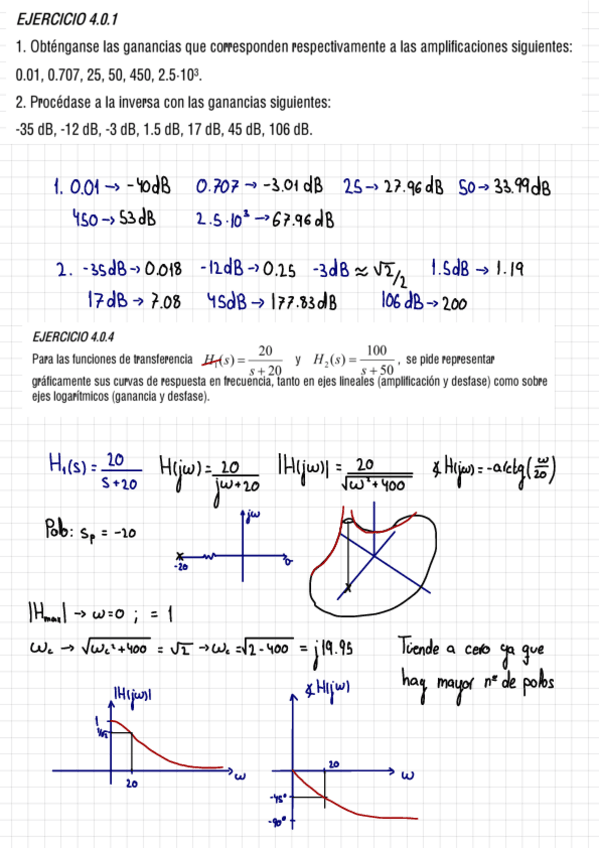 EJERCICIO 4.0.1
1. Obténganse las ganancias que corresponden respectivamente a las amplificaciones siguientes:
0.01, 0.707, 25, 50, 450, 2.5·10³.
2. Procédase a la inversa con las ganancias siguientes:
-35 dB, -12 dB, -3 dB, 1.5 dB, 17 dB, 45 dB, 106 dB.
1. 0.01 → -40dB 0.707 → -3.01 dB 25 → 27.96 dB 50 → 33.99dB
450 → 53dB 2.5·10³ → 67.96 dB
2. -35dB → 0.018 -12dB → 0.25 -3dB ≈ √2/2 1.5dB → 1.19
17dB → 7.08 45dB → 177.83dB 106 dB → 200
EJERCICIO 4.0.4
Para las funciones de transferencia H₁(s) = 20/(s+20) y H₂(s) = 100/(s+50), se pide representar
gráficamente sus curvas de respuesta en frecuencia, tanto en ejes lineales (amplificación y desfase) como sobre
ejes logarítmicos (ganancia y desfase).
H₁(s) = 20/(s+20) H(jω) = 20/(jω+20) |H(jω)| = 20/√(ω²+400) ∡H(jω) = -arctg(ω/20)
Polo: Sp = -20
jω
-20 σ
|Hmax| → ω=0 ; = 1
ωc → √(ωc²+400) = √2 → ωc = √(2-400) = j19.95
Tiende a cero ya que
hay mayor nº de polos
|H(jω)|
1
1/√2
20
ω
∡H(jω)
20
ω
-45°
-90°